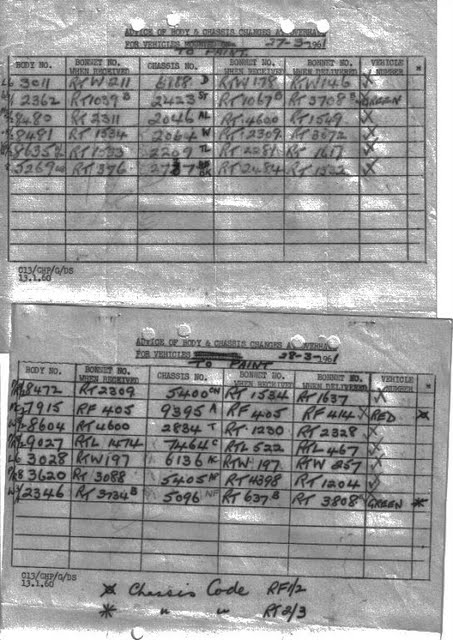 ADVICE OF BODY & CHASSIS CHANGES
FOR VEHICLES 27-3-1961
TO PAINT
BODY NO. BONNET NO. WHEN RECEIVED CHASSIS NO. BONNET NO. WHEN RECEIVED BONNET NO. WHEN DELIVERED VEHICLE NUMBER *
L6 3011 RTW 211 D RTW 178 RTW 146
2362 RT 1039 B 2423 ST RT 1067 B RT 3708 B GREEN
8480 RT 2311 2046 AL RT 4600 RT 1549
8491 RT 1534 2064 W RT 2309 RT 3672
8635 2209 TL RT 2281 RT 1617
5269 RT 376 RT 2484 RT 1522
C13/CHP/G/DS
13.1.60
ADVICE OF BODY & CHASSIS CHANGES
FOR VEHICLES 28-3-1961
TO PAINT
BODY NO. BONNET NO. WHEN RECEIVED CHASSIS NO. BONNET NO. WHEN RECEIVED BONNET NO. WHEN DELIVERED VEHICLE NUMBER *
8472 RT 2309 5400 CN RT 1534 RT 1637
7915 RF 405 9395 A RF 405 RF 414 RED
8604 RT 4600 2834 T RT 1230 RT 2328
9027 RTL 1474 7464 C RTL 522 RTL 467
L6 3028 RTW 197 6136 RTW 197 RTW 257
3620 RT 3088 5405 RT 4398 RT 1204
2346 RT 3734 B 5096 NF RT 637 B RT 3808 GREEN *
C13/CHP/G/DS
13.1.60
Chassis Code RF1/2
* " " RT 2/3